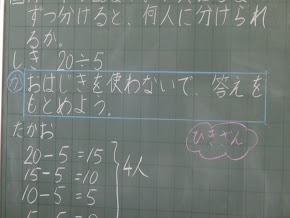 ずつ分けると、何人に分けられ
るか。
しき 20÷5
おはじきを使わないで、答えを
もとめよう。
たかお
20-5=15
15-5=10
10-5=5
4人
ひきざん